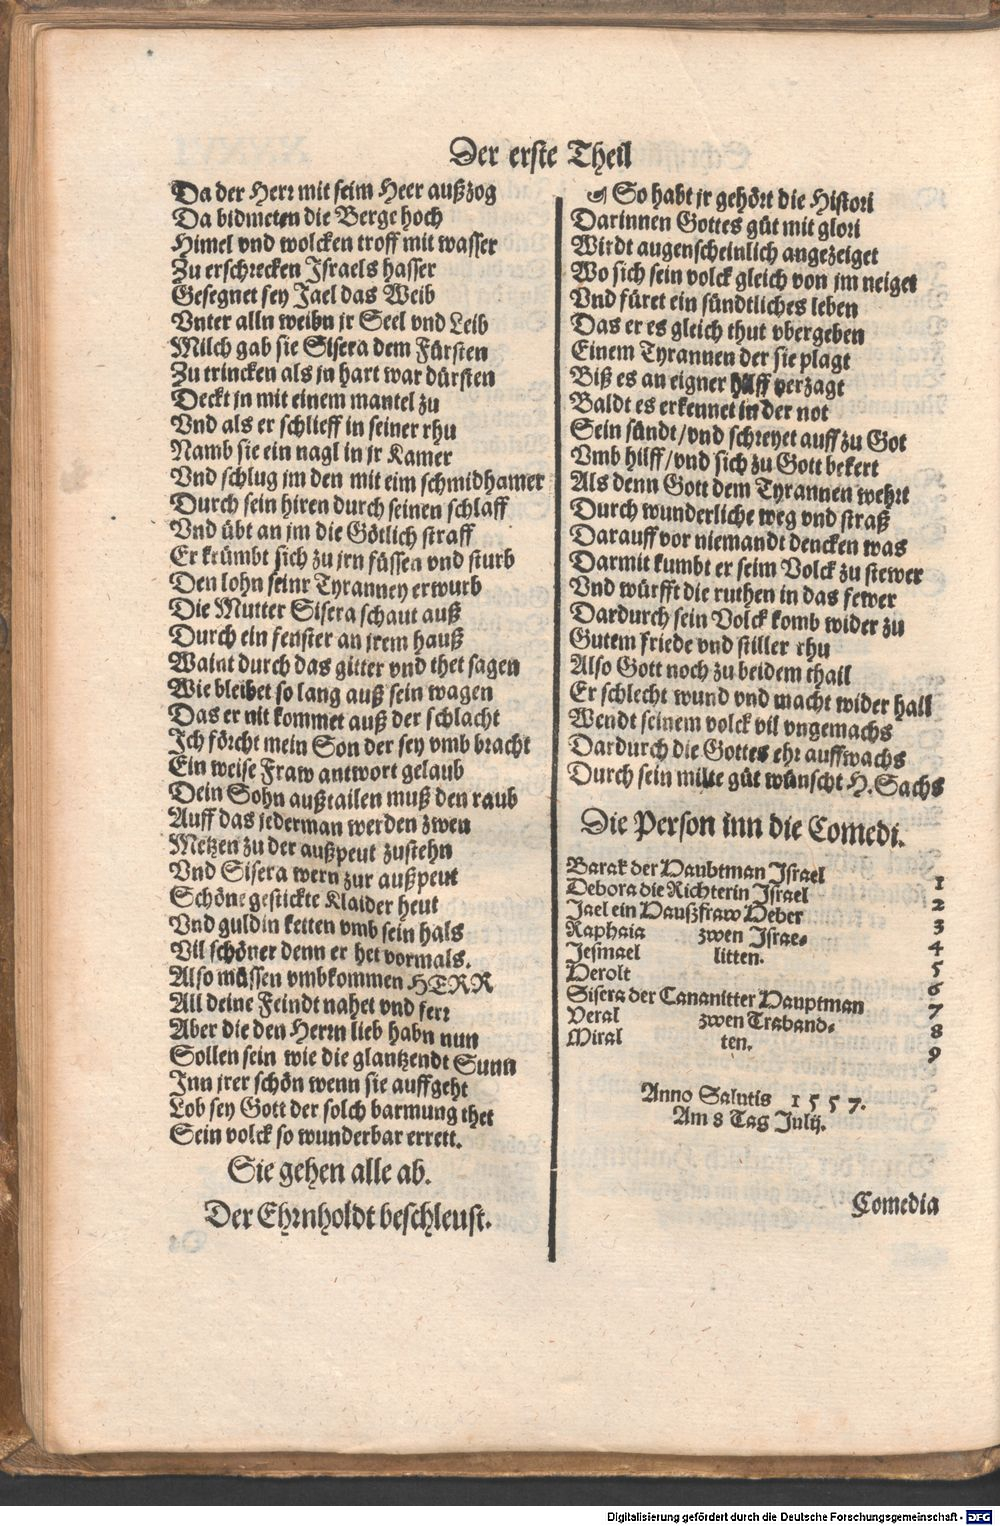 Der erste Theil
Da der Herr mit seim Heer außzog
Da bidmeten die Berge hoch
Himel vnd wolcken troff mit wasser
Zu erschrecken Israels hasser
Gesegnet sey Jael das Weib
Vnter alln weibn jr Seel vnd Leib
Milch gab sie Sisera dem Fürsten
Zu trincken als jn hart war dürsten
Deckt jn mit einem mantel zu
Vnd als er schlieff in seiner rhu
Namb sie ein nagl in jr Kamer
Vnd schlug jm den mit eim schmidhamer
Durch sein hiren durch seinen schlaff
Vnd übt an jm die Götlich straff
Er krümbt sich zu jrn füssen vnd sturb
Den lohn seinr Tyranney erwurb
Die Mutter Sisera schaut auß
Durch ein fenster an jrem hauß
Waint durch das gitter vnd thet sagen
Wie bleibet so lang auß sein wagen
Das er nit kommet auß der schlacht
Ich förcht mein Son der sey vmb bracht
Ein weise Fraw antwort gelaub
Dein Sohn außtailen muß den raub
Auff das jederman werden zwen
Metzen zu der außpeut zustehn
Vnd Sisera wern zur außpeut
Schöne gestickte Klaider heut
Vnd guldin ketten vmb sein hals
Vil schöner denn er het vormals.
Also müssen vmbkommen HERR
All deine Feindt nahet vnd ferr
Aber die den Herrn lieb habn nun
Sollen sein wie die glantzendt Sunn
Inn jrer schön wenn sie auffgeht
Lob sey Gott der solch barmung thet
Sein volck so wunderbar errett.
Sie gehen alle ab.
Der Ehrnholdt beschleust.
☙ So habt jr gehört die Histori
Darinnen Gottes güt mit glori
Wirdt augenscheinlich angezeiget
Wo sich sein volck gleich von jm neiget
Vnd füret ein sündtliches leben
Das er es gleich thut vbergeben
Einem Tyrannen der sie plagt
Biß es an eigner hilff verzagt
Baldt es erkennet in der not
Sein sündt/vnd schreyet auff zu Got
Vmb hilff/vnd sich zu Gott bekert
Als denn Gott dem Tyrannen wehrt
Durch wunderliche weg vnd straß
Darauff vor niemandt dencken was
Darmit kumbt er seim Volck zu stewer
Vnd würfft die ruthen in das fewer
Dardurch sein Volck komb wider zu
Gutem friede vnd stiller rhu
Also Gott noch zu beidem thail
Er schlecht wund vnd macht wider hail
Wendt seinem volck vil vngemachs
Dardurch die Gottes ehr auffwachs
Durch sein milte güt wünscht H. Sachs
Die Person inn die Comedi.
Barak der Haubtman Israel 1
Debora die Richterin Israel 2
Jael ein Haußfraw Heber 3
Raphaia zwen Israe- 4
Jesmael litten. 5
Herolt 6
Sisera der Cananitter Hauptman 7
Heral zwen Traband- 8
Miral ten. 9
Anno Salutis 1557.
Am 8 Tag Julij.
Comedia
Digitalisierung gefördert durch die Deutsche Forschungsgemeinschaft - DFG